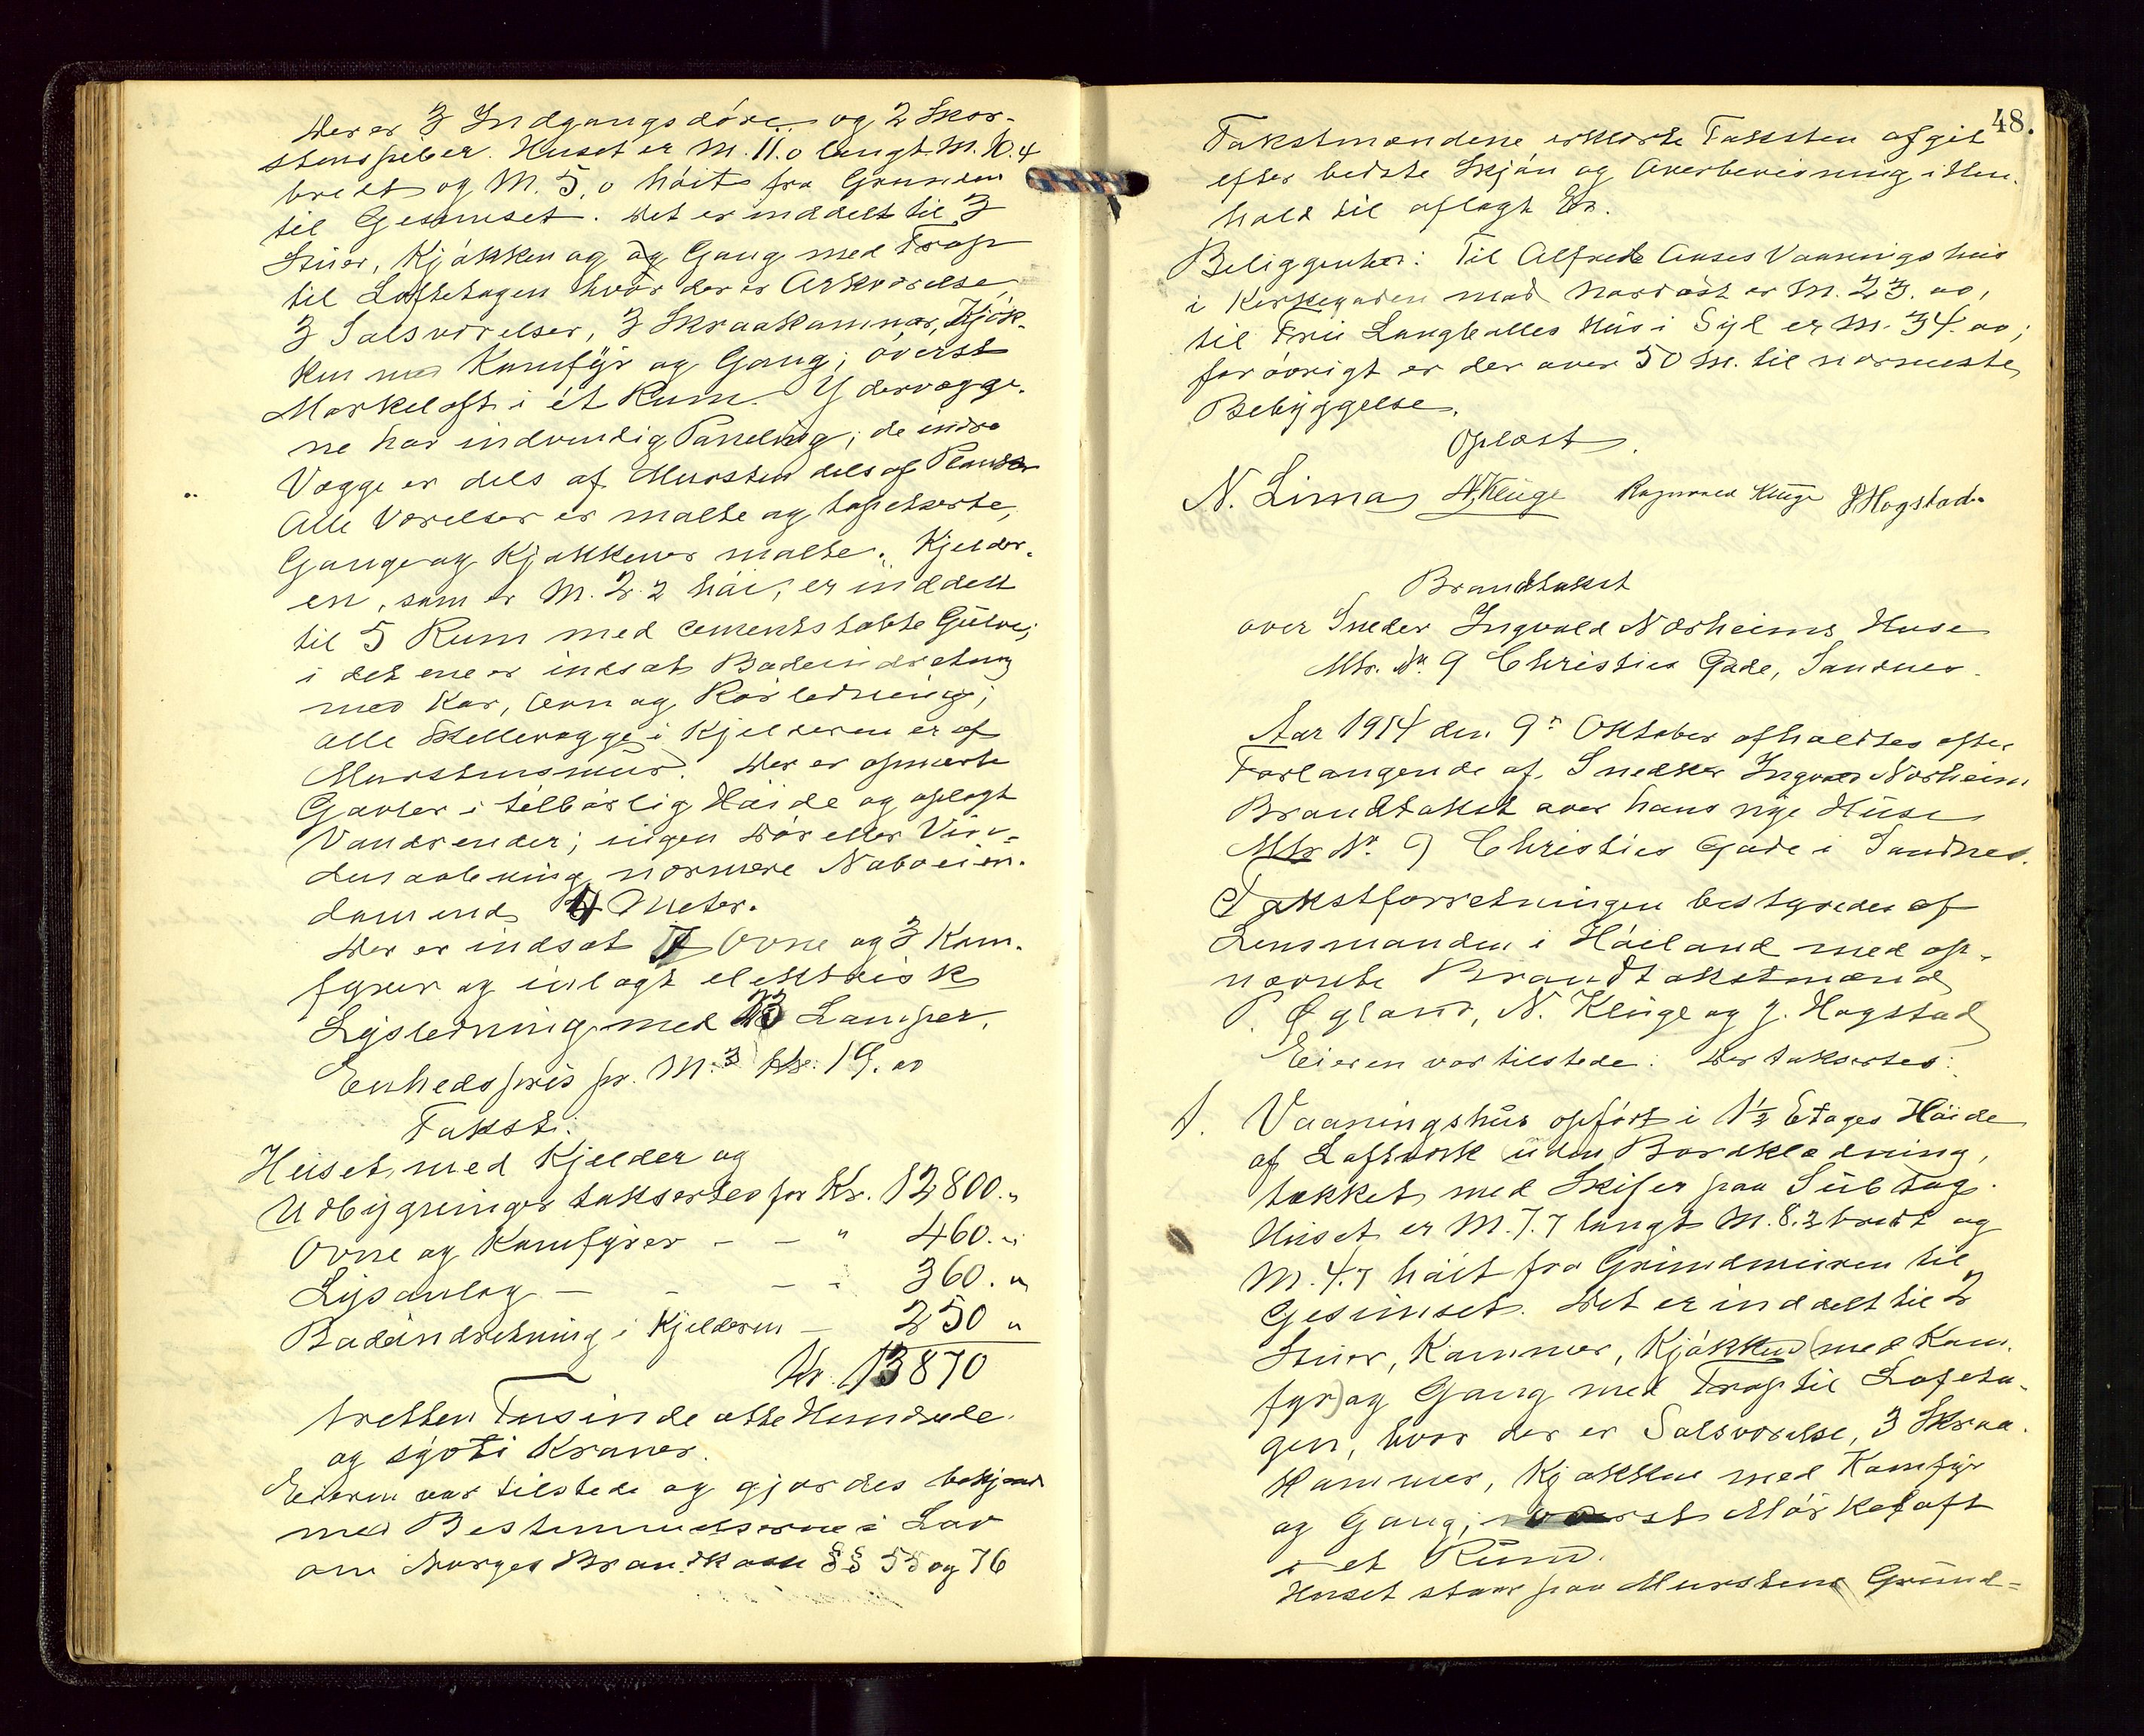 Der er 3 Indgangsdöre og 2 Skor-
stenspiber. Huset er M. 11.0 langt M. 10.4
bredt og M. 5.0 höit fra Grunden
til Gesimset. Det er inddelt til 3
Stuer, Kjökken og og Gang med Trap
til Loftetagen hvor der er Arkværelse,
3 Salsværelser, 3 Skraakammer, Kjök-
ken med Komfyr og Gang; överst
Mørkeloft i ét Rum. Ydervægge-
ne har indvendig Paneling; de indre
Vægge er dels af Mursten dels af Planker
Alle Værelser er malte og tapetserte,
Gange og Kjøkkener malte. Kjelder-
en, som er M. 2.2 höi, er inddelt
til 5 Rum med cementstøbte Gulve;
i det ene er indsat Badeindretning
med Kar, Ovn og Rörledning;
alle Skillevægge i Kjelderen er af
Murstensmur. Der er opmurte
Gavler i tilbörlig Höide og oplagt
Vandrender; ingen Dör eller Vin-
duaabning nærmere Naboeien-
dom end 4 Meter.
Der er indsat 7 Ovne og 3 Kom-
fyrer og inlagt elektrisk
Lysledning med 23 Lamper.
Enhedspris pr. M.3 Kr. 19.00
Takst:
Huset med Kjelder og
Udbygninger taksertes for Kr. 12800.„
Ovne og Komfyrer - - „ 460.„
Lysanlæg - - - 360.„
Badeindretning i Kjelderen - 250 „
Kr. 13870
tretten Tusinde otte Hundrede
og syvti Kroner.
Eieren var tilstede og gjordes bekjendt
med Bestemmelserne i Lov
om Norges Brandkasse §§ 55 og 76
48.
Takstmændene erklærte Taksten afgit
efter bedste Skjön og Overbevisning i Hen-
hold til aflagt Ed.
Beliggenhet: Til Alfred Auses Vaaningshus
i Kirkegaden mod Nordöst er M. 23.00,
til Fru Langballes Hus i Syd er M. 34.00;
forövrigt er der over 50 M. til nærmeste
Bebyggelse.
Oplæst.
N. Lima N. Kluge Ragnvald Kluge J Hogstad.
Brandtakst
over Sneder Ingvald Nærheims Huse
Mtr. Nr. 9 Christies Gade, Sandnes.
Aar 1914 den 9de Oktober afholdtes efter
Forlangende af Snedker Ingvald Nærheim
Brandtakst over hans nye Huse
Mtr Nr. 9 Christies Gade i Sandnes.
Takstforretningen bestyredes af
Lensmanden i Höiland med op-
nævnte Brandtakstmænd
P. Øgland, N. Kluge og J. Hogstad
Eieren var tilstede. Der taksertes:
1. Vaaningshus opfört i 1½ Etages Höide
af Loftverk uden Bordklædning,
tækket med Skifer paa Subtag.
Huset er M. 7.7 langt M. 8.2 bredt og
M. 4.7 höit fra Grundmuren til
Gesimset. Det er inddelt til 2
Stuer, Kammer, Kjökken (med Kom-
fyr) og Gang med Trap til Lofeta-
gen, hvor der er Salsværelse, 3 Skraa-
Kammer, Kjøkken med Komfyr
og Gang; överst Mörkeloft
i et Rum.
Huset staar paa Murstens Grund-